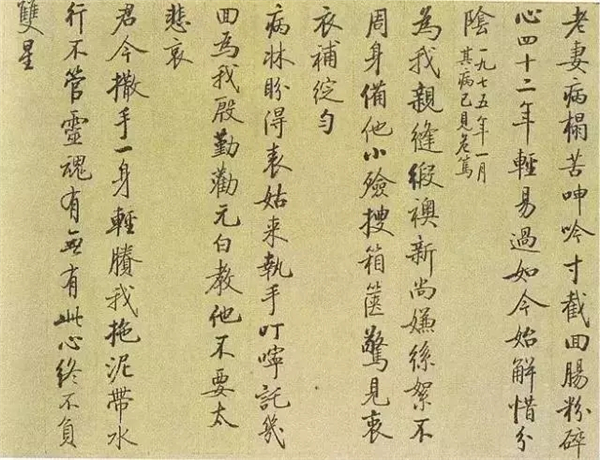 老妻病榻苦呻吟寸截囬腸粉碎
心四十二年輕易過如今始解惜分
陰
一九七五年一月
其病已見危篤
為我親縫緞襖新尚嫌絲絮不
周身備他小殮搜箱篋驚見衷
衣補綻勻
病牀盼得表姑来執手叮嚀託幾
囬為我殷勤勸元白教他不要太
悲哀
君今撒手一身輕賸我拖泥帶水
行不管靈魂有無有此心終不負
雙星